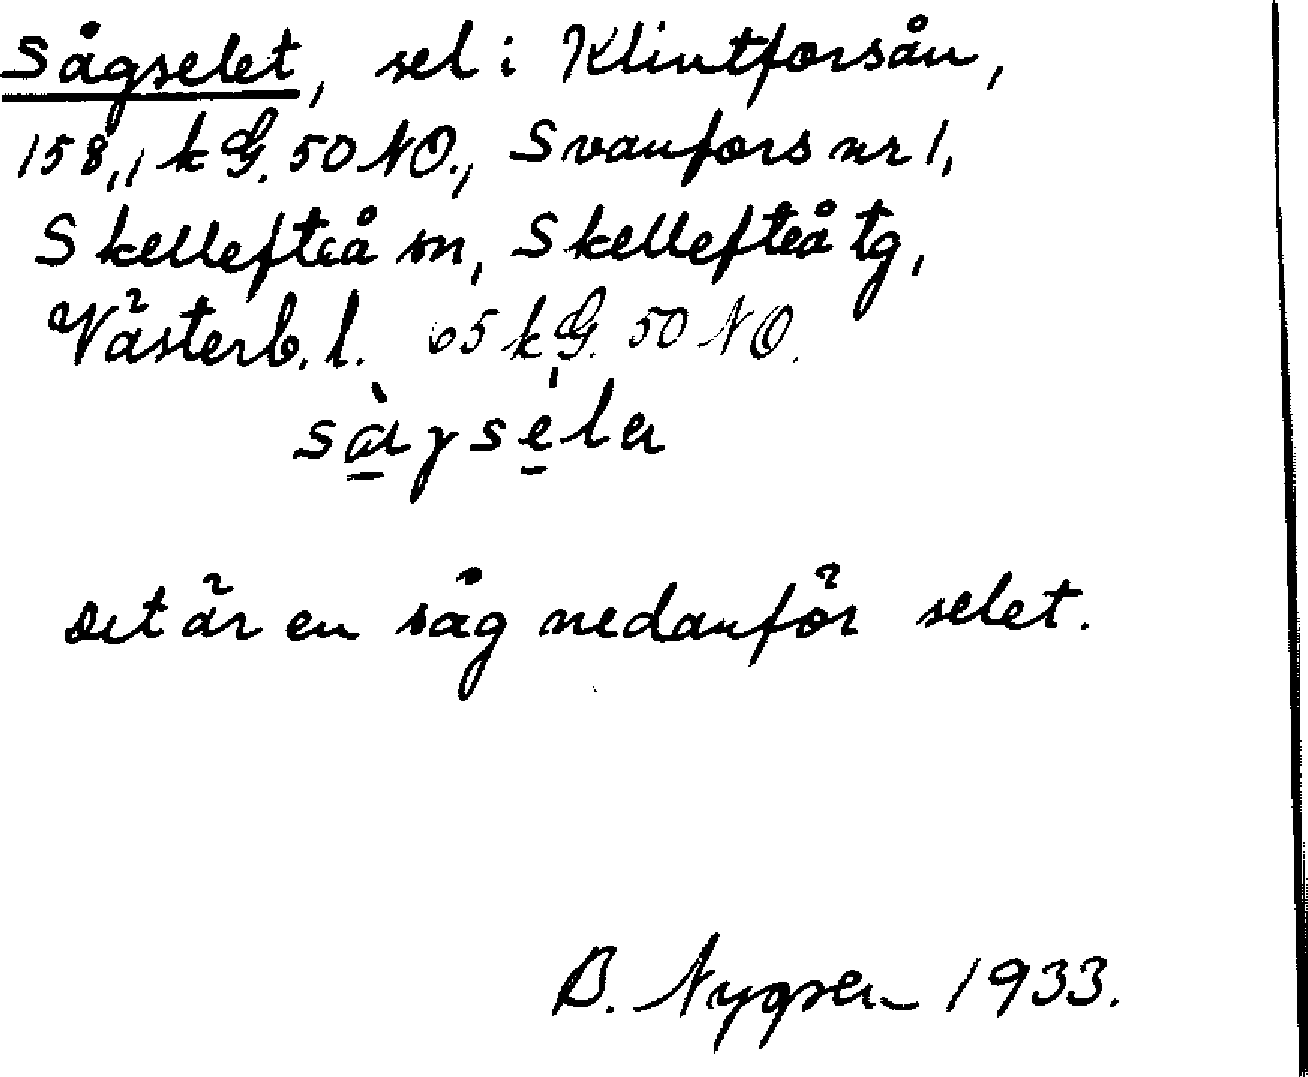 Sågselet, sel i Klintforsån,
158,1 k G. 50 NO., Svanfors nr 1,
Skellefteå sn, Skellefteå tg,
Västerb. l. 65 k G. 50 NO.
Det är en såg nedanför selet.
B. Nygren 1933.